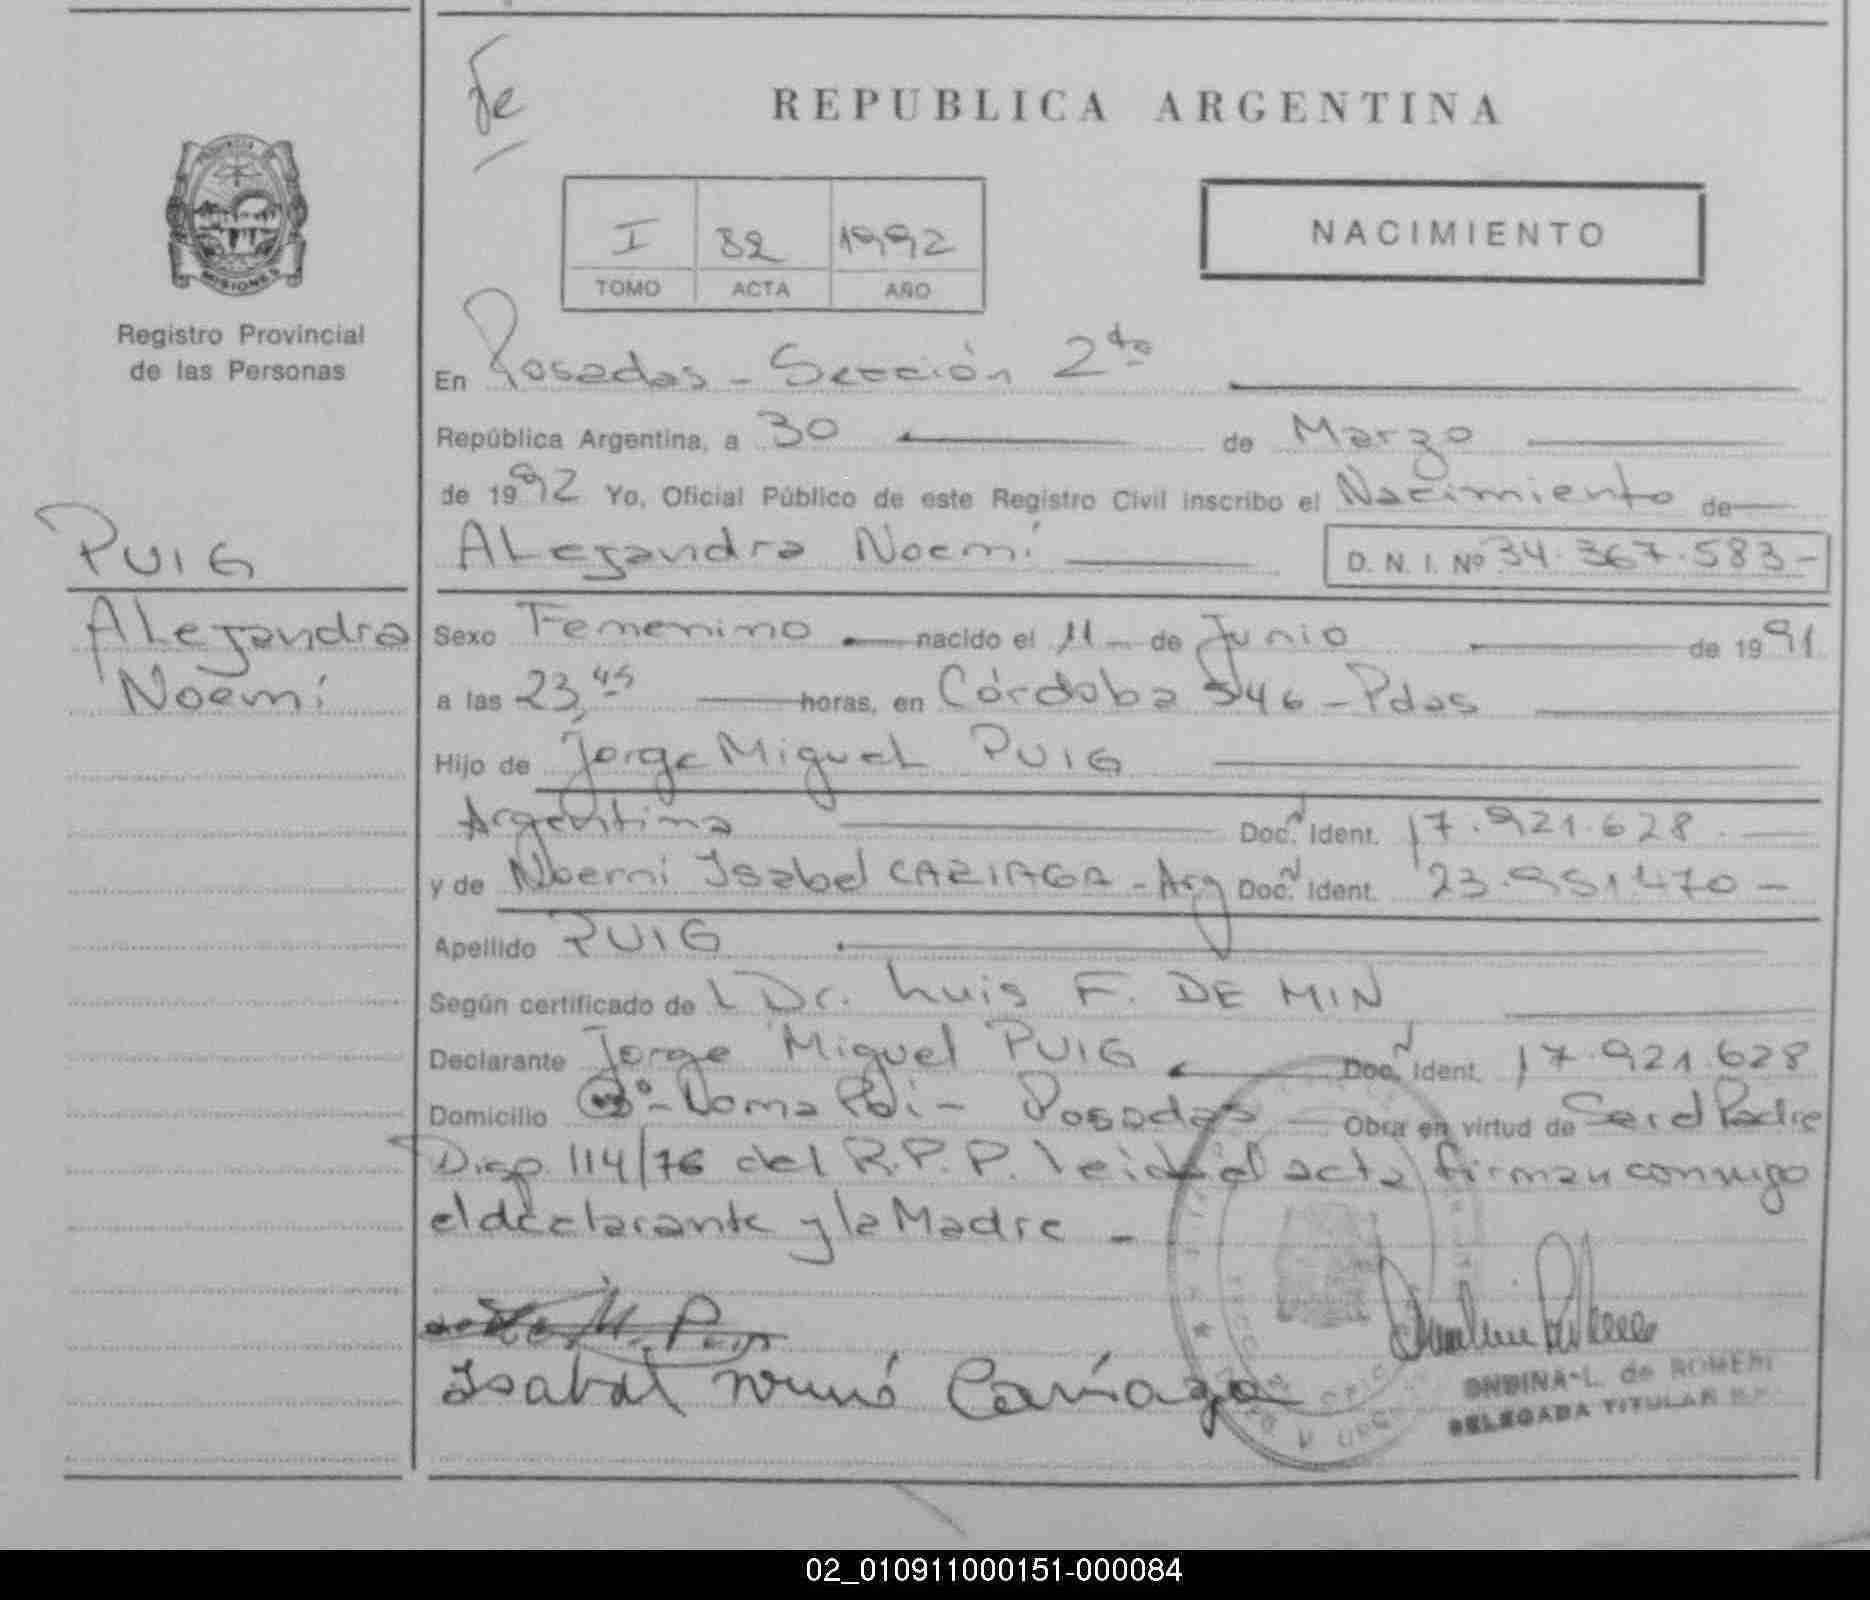 Fe
REPUBLICA ARGENTINA
I 82 1992
TOMO ACTA AÑO
NACIMIENTO
MISIONES
Registro Provincial
de las Personas
En Posadas - Sección 2da
República Argentina, a 30 de Marzo
de 1992 Yo, Oficial Público de este Registro Civil inscribo el Nacimiento de
PUIG
Alejandra Noemí D. N. I. Nº 34.367.583-
Alejandra
Noemí
Sexo Femenino nacido el 11 - de Junio de 1991
a las 23,45 horas, en Córdoba 546 - Pdas
Hijo de Jorge Miguel PUIG
Argentina Doc. Ident. 17.921.628
y de Noemí Isabel CARIAGA - Arg Doc. Ident. 23.951.470 -
Apellido PUIG
Según certificado de Dr. Luis F. DE MIN
Declarante Jorge Miguel PUIG Doc. Ident. 17.921.628
Domicilio Bº - Loma Poi - Posadas Obra en virtud de Ser el Padre
Disp. 114/76 del R.P.P. leida el acta firman conmigo
el declarante y la Madre -
M. Puig
Isabel Noemí Cariaga
ONDINA L. de ROMERO
DELEGADA TITULAR
02_010911000151-000084